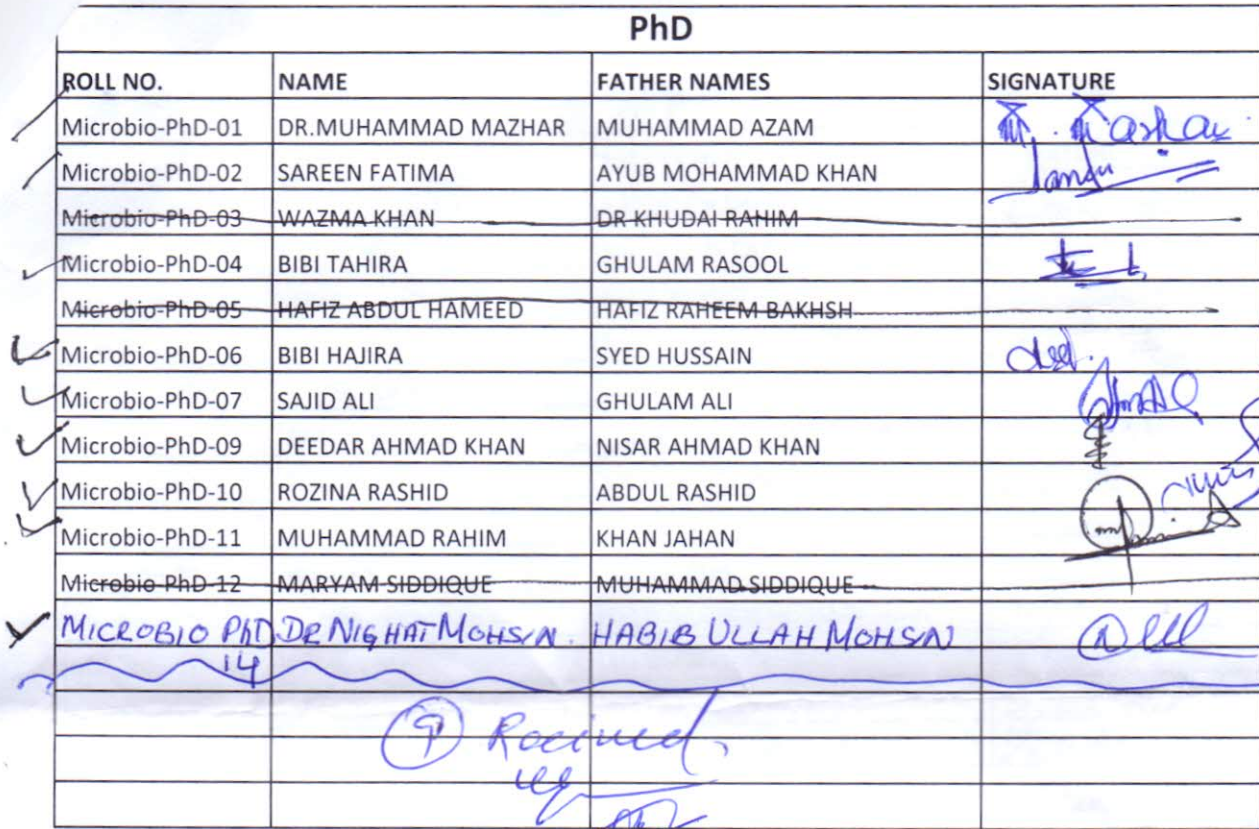 PhD
ROLL NO. NAME FATHER NAMES SIGNATURE
Microbio-PhD-01 DR.MUHAMMAD MAZHAR MUHAMMAD AZAM
Microbio-PhD-02 SAREEN FATIMA AYUB MOHAMMAD KHAN
Microbio-PhD-03 WAZMA KHAN DR KHUDAI RAHIM
Microbio-PhD-04 BIBI TAHIRA GHULAM RASOOL
Microbio-PhD-05 HAFIZ ABDUL HAMEED HAFIZ RAHEEM BAKHSH
Microbio-PhD-06 BIBI HAJIRA SYED HUSSAIN
Microbio-PhD-07 SAJID ALI GHULAM ALI
Microbio-PhD-09 DEEDAR AHMAD KHAN NISAR AHMAD KHAN
Microbio-PhD-10 ROZINA RASHID ABDUL RASHID
Microbio-PhD-11 MUHAMMAD RAHIM KHAN JAHAN
Microbio-PhD-12 MARYAM SIDDIQUE MUHAMMAD SIDDIQUE
MICROBIO PhD DR NIGHAT MOHSIN. HABIB ULLAH MOHSIN
14
9 Received